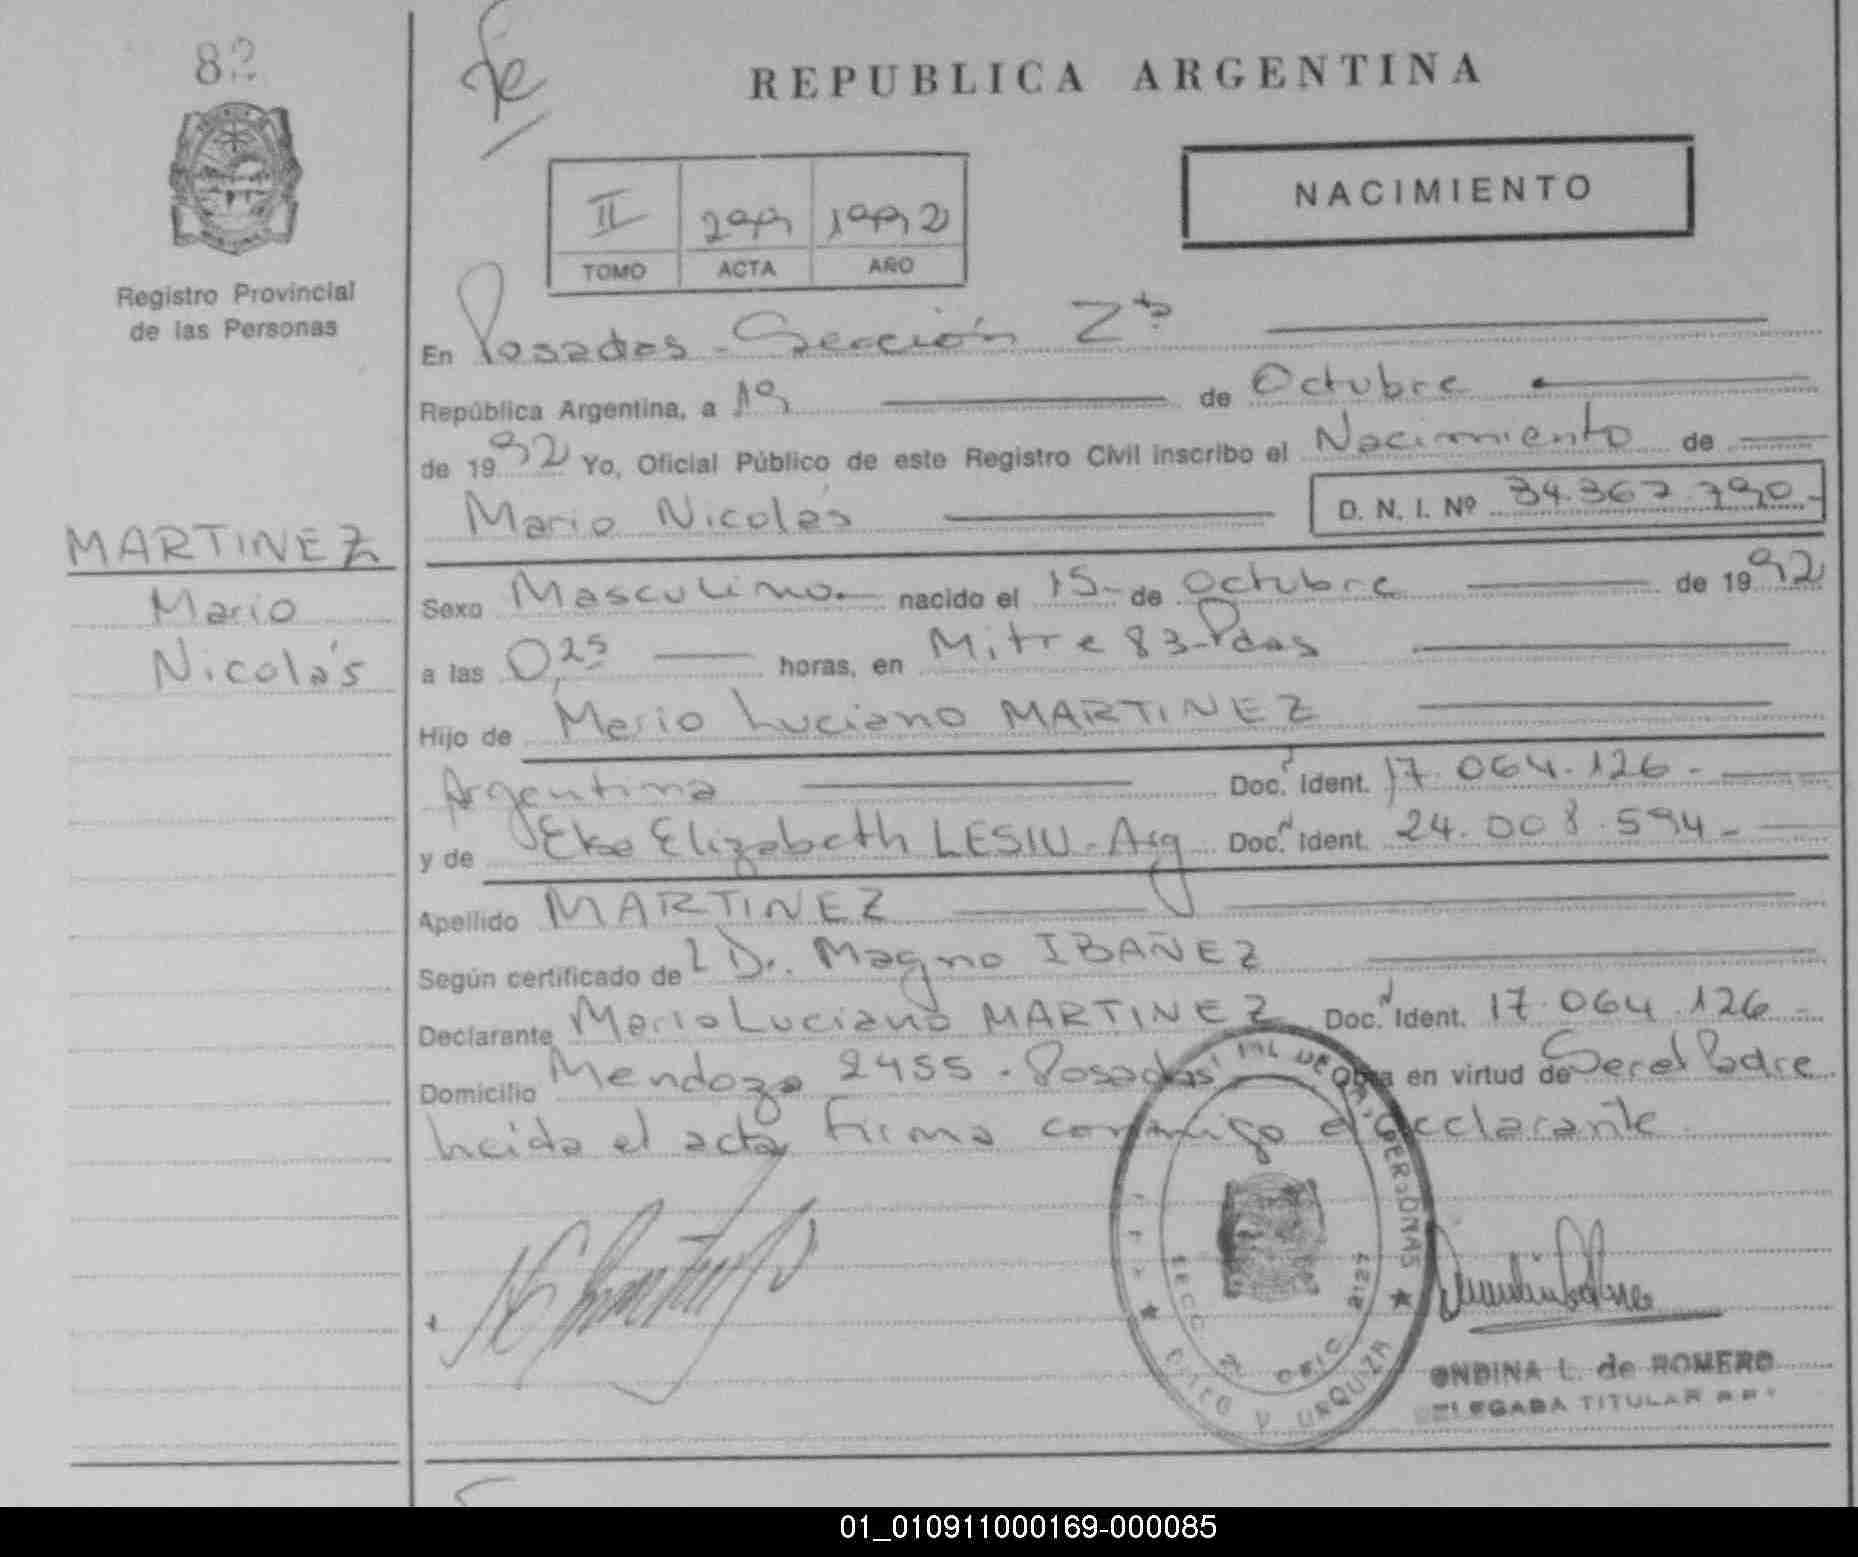 82
REPUBLICA ARGENTINA
NACIMIENTO
II 299 1992
TOMO ACTA AÑO
Registro Provincial
de las Personas
En Posadas - Sección 2ª
República Argentina, a 19 de Octubre
de 1992 Yo, Oficial Público de este Registro Civil inscribo el Nacimiento de
Mario Nicolás D. N. I. Nº 34.367.790.-
MARTINEZ
Mario
Nicolás
Sexo Masculino.- nacido el 15- de Octubre de 1992
a las 0,25 horas, en Mitre 83-Pdas
Hijo de Mario Luciano MARTINEZ
Argentina Doc. Ident. 17.064.126.-
y de Elizabeth LESIU - Arg Doc. Ident. 24.008.594-
Apellido MARTINEZ
Según certificado de Dr. Magno IBAÑEZ
Declarante Mario Luciano MARTINEZ Doc. Ident. 17.064.126.-
Domicilio Mendoza 2455 - Posadas Obra en virtud de Ser el Padre
leida el acta firma conmigo el declarante
PERSONAS
SECC 2ª OFIC 2127
URQUIZA
ONDINA L. de ROMERO
DELEGADA TITULAR
01_010911000169-000085